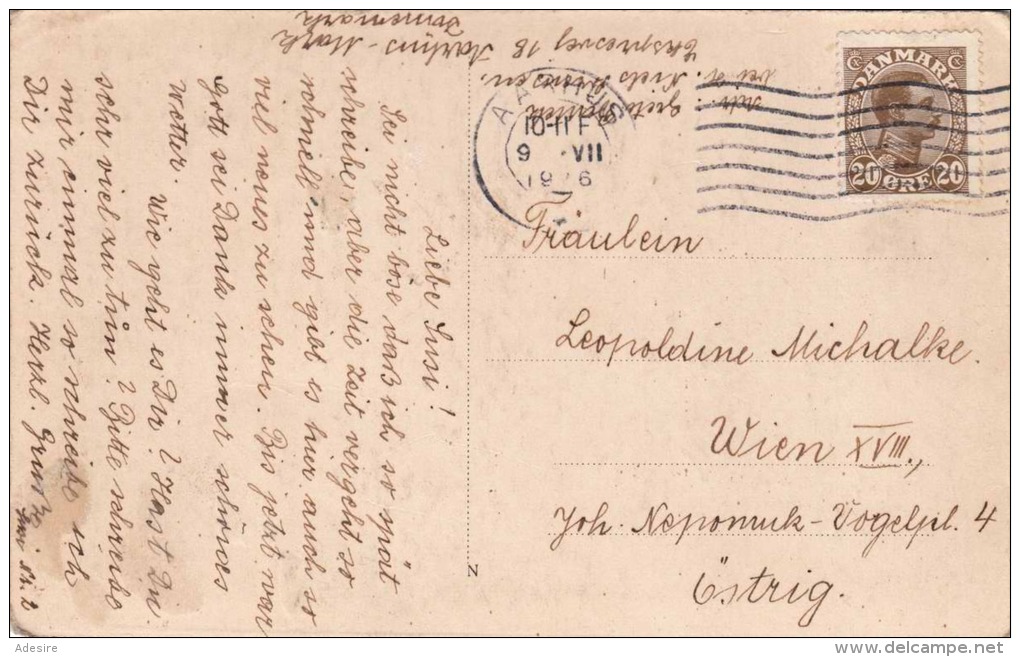 Liebe Susi!
Sei nicht böse daß ich so spät
schreibe, aber die Zeit vergeht so
schnell und gibt es hier auch so
viel neues zu sehen. Bis jetzt war
Gott sei Dank immer schönes
wetter. Wie geht es Dir? Hast Du
sehr viel zu tun? Bitte schreibe
mir einmal so schreibe ich
Dir zurück. Herzl.
Niels
Ekspresvej 18
DANMARK
20 ØRE 20
AARHUS
10-11 F
9 VII
Fräulein
Leopoldine Michalke.
Wien XVIII.,
Joh. Nepomuk-Vogelpl. 4
Östrig.
N
Adesire
delcampe.net